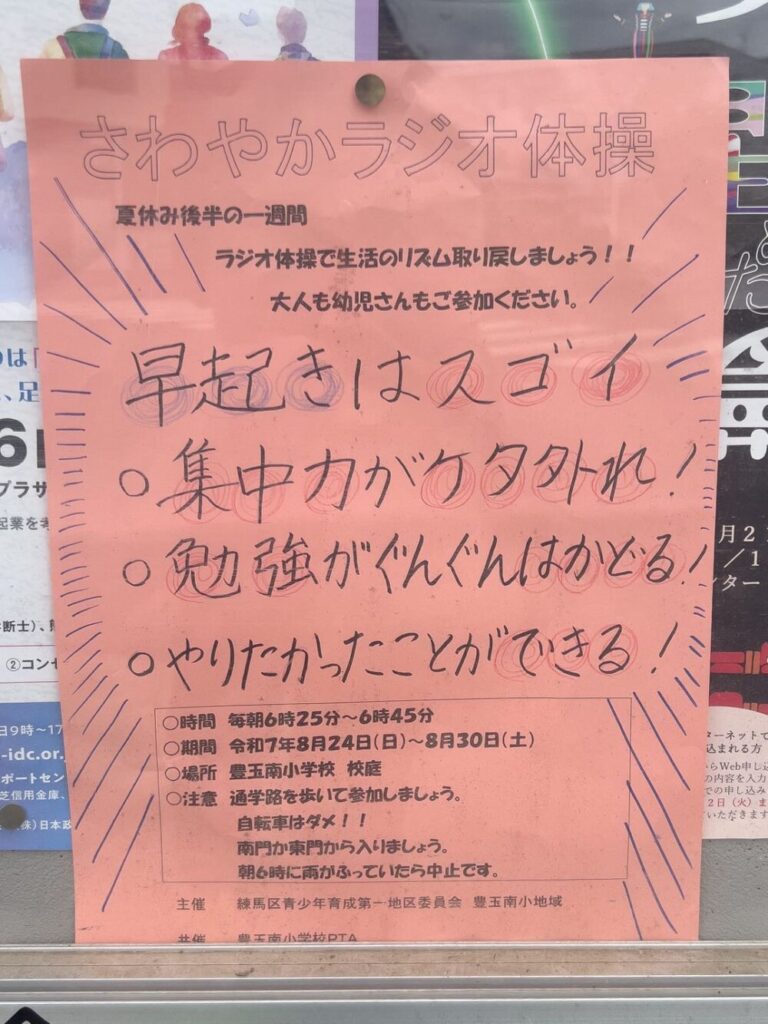 さわやかラジオ体操
夏休み後半の一週間
ラジオ体操で生活のリズム取り戻しましょう！！
大人も幼児さんもご参加ください。
早起きはスゴイ
○集中力がケタ外れ！
○勉強がぐんぐんはかどる！
○やりたかったことができる！
○時間 毎朝6時25分～6時45分
○期間 令和7年8月24日(日)～8月30日(土)
○場所 豊玉南小学校 校庭
○注意 通学路を歩いて参加しましょう。
自転車はダメ！！
南門か東門から入りましょう。
朝6時に雨がふっていたら中止です。
主催 練馬区青少年育成第一地区委員会 豊玉南小地域
共催 豊玉南小学校PTA
のは
、足
プラザ
起業を考
断士)、
②コンセ
日9時～17
-idc.or.
ポートセン
芝信用金庫、
(株)日本政
月2
/1
ンター
ターネットで
込まれる方
らWeb申し込
の内容を入力
での申し込み
2日（火）ま
いただきます